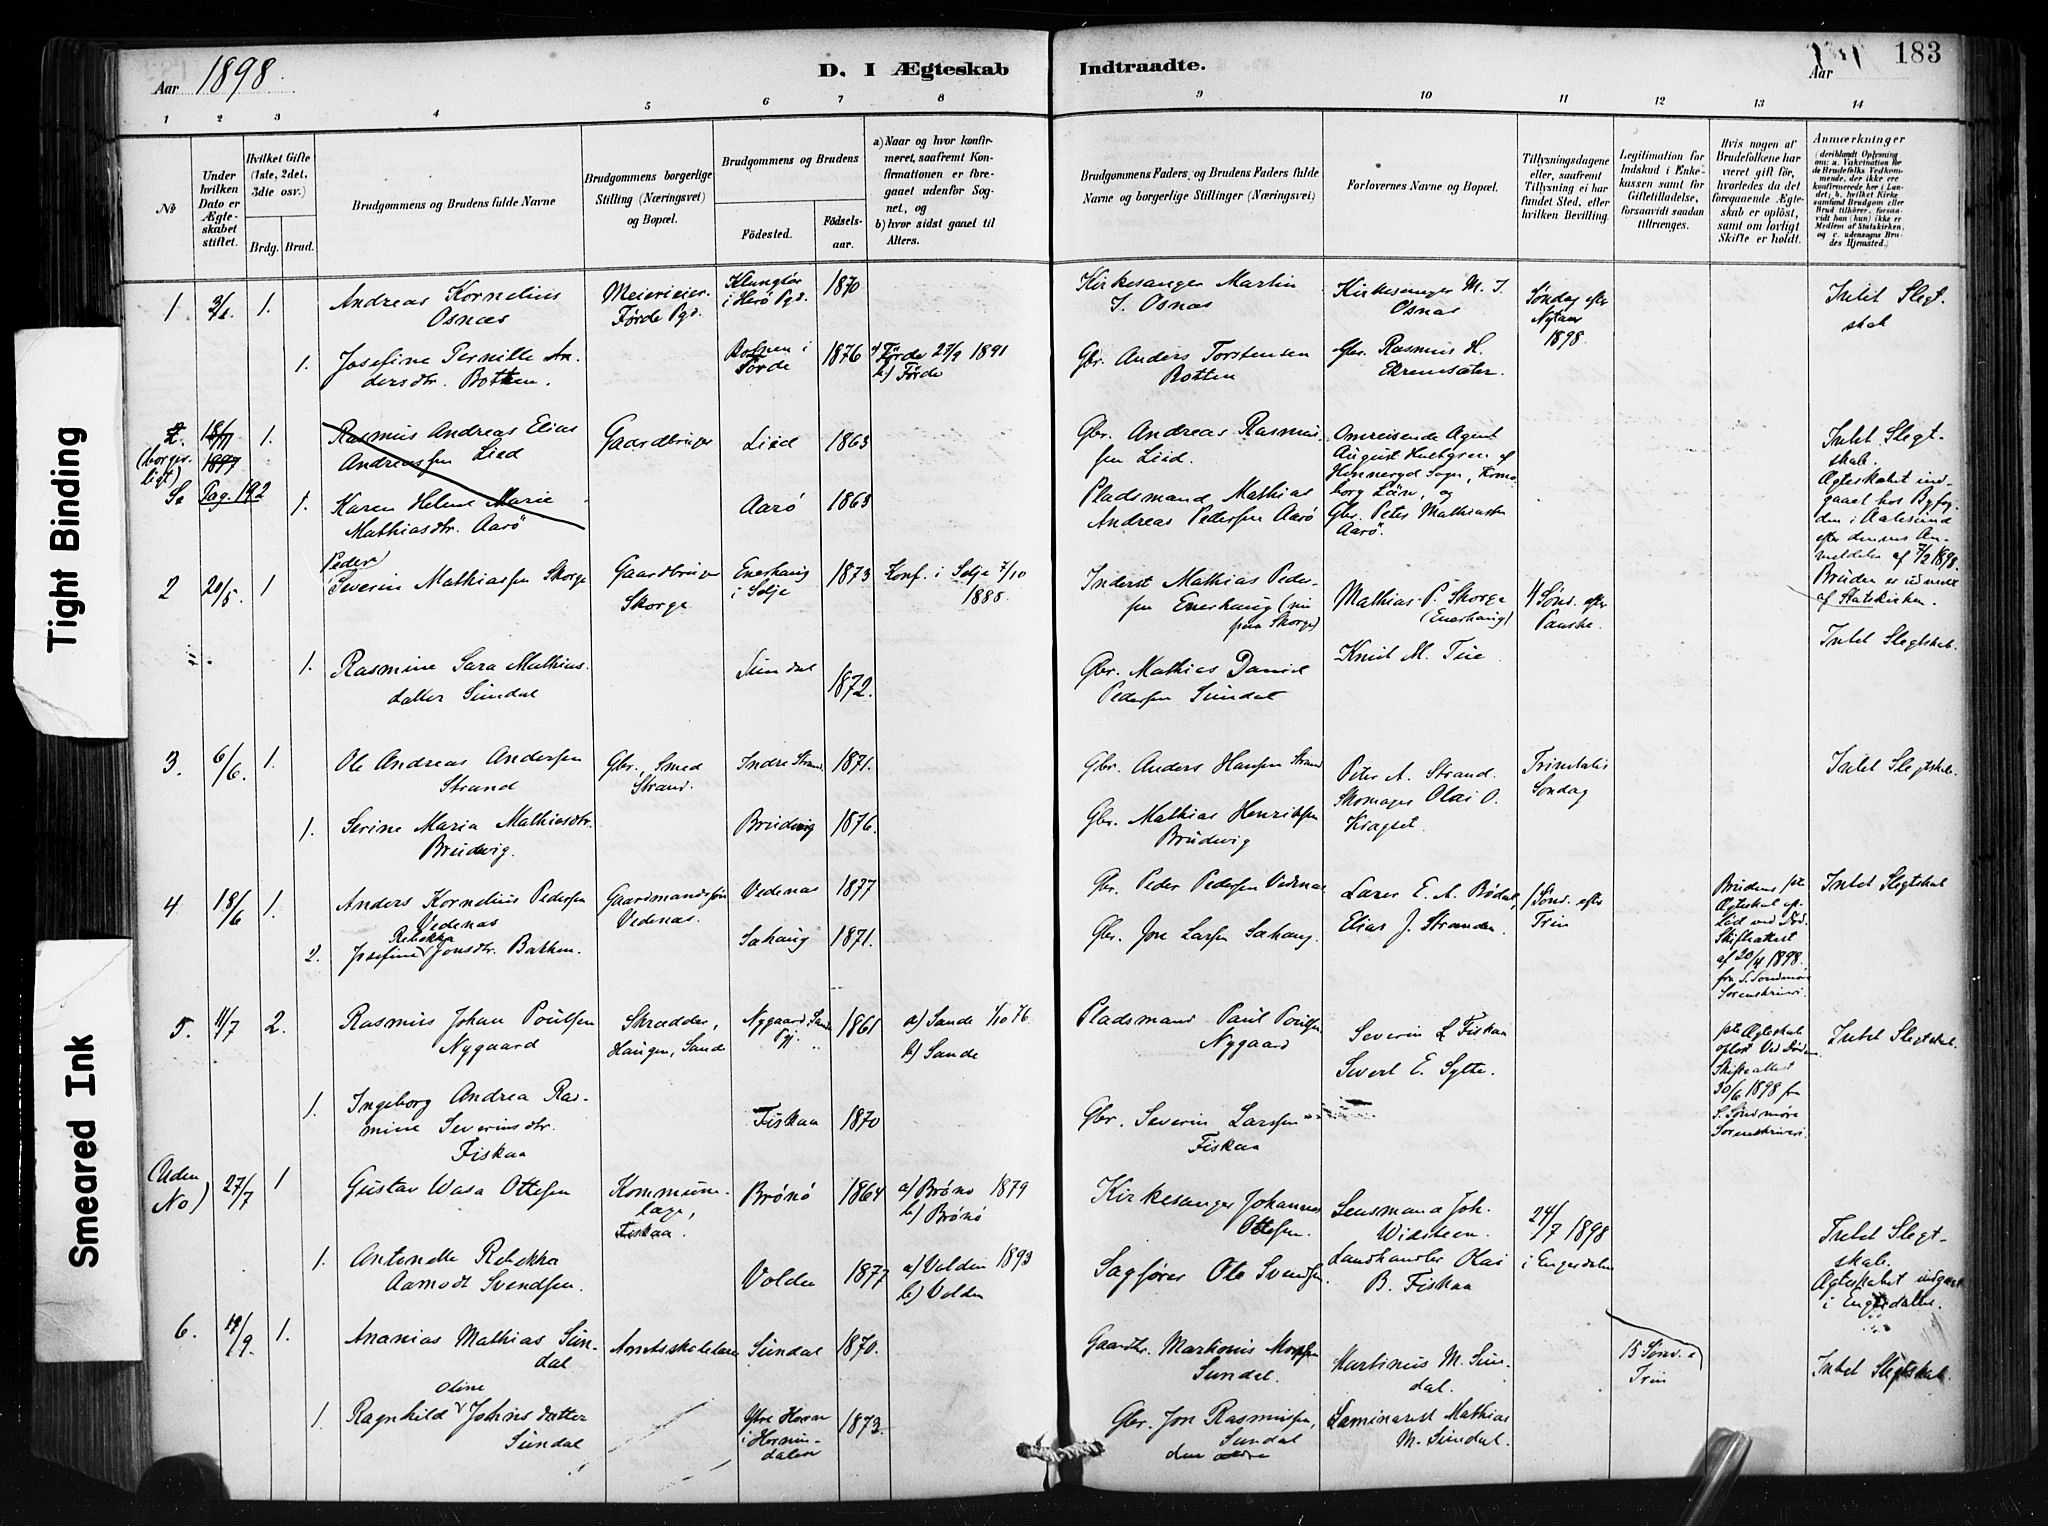 Aar 1898.
D. I Ægteskab Indtraadte.
Aar
183
1 2 3 4 5 6 7 8 9 10 11 12 13 14
No
Under hvilken Dato er Ægteskabet stiftet.
Hvilket Gifte (1ste, 2det, 3dte osv.)
Brdg. Brud.
Brudgommens og Brudens fulde Navne
Brudgommens borgerlige Stilling (Næringsvei) og Bopæl.
Brudgommens og Brudens
Födested. Födselsaar.
a) Naar og hvor konfirmeret, saafremt Konfirmationen er foregaaet udenfor Sognet, og
b) hvor sidst gaaet til Alters.
Brudgommens Faders og Brudens Faders fulde Navne og borgerlige Stillinger (Næringsvei)
Forlovernes Navne og Bopæl.
Tillysningsdagene eller, saafremt Tillysning ei har fundet Sted, efter hvilken Bevilling.
Legitimation for Indskud i Enkekassen samt for Giftetilladelse, forsaavidt saadan tiltrænges.
Hvis nogen af Brudefolkene har været gift för, hvorledes da det foregaaende Ægteskab er oplöst, samt om lovligt Skifte er holdt.
Anmærkninger (deriblandt Oplysning om: a. Vakcination for de Brudefolks Vedkommende, der ikke ere konfirmerede her i Landet; b. hvilket Kirkesamfund Brudgom eller Brud tilhörer, forsaavidt han (hun) ikke er Medlem af Statskirken, og c. udensogns Brudes Hjemsted.)
1 1. Andreas Kornelius Osnæs
Meierieier Førde Pgs.
i Herø Pgs. 1870
Kirkesanger Martin J. Osnas
Kirkesanger M. J. Osnas
Søndag efter Nytaar 1898.
Intet Slegtskab
1. Josefine Pernille Andersdtr. Botten.
Botnen i Førde 1876
a) Førde 27/9 1891
b) Førde
Gbr. Anders Torstensen Botten
Gbr. Rasmus H. Ekremsæter.
2. (borgerligt) Se Pag. 192
18/11 1897 1.
Rasmus Andreas Elias Andreassen Lied
Gaardbruger Lied 1863
Gbr. Andreas Rasmussen Lied.
Omreisende Agent August
Sogn,
Län, og
Gbr. Peter Mathiassen Aarö.
Intet Slegtskab.
Ægteskabet indgaaet hos Byfogden i Aalesund efter dennes Anmeldelse af 7/2 1898.
Bruden er udmeldt af Statskirken.
1. Karen Helene Marie Mathiasdtr. Aarö
Aarö 1863
Pladsmand Mathias Andreas Pedersen Aarö
2 20/5 1
Peder Severin Mathiassen Skorge
Gaardbruger Skorge
Enerhaug i Selje 1873
Konf. i Selje 7/10 1888.
Inderst Mathias Pedersen Enerhaug (nu paa Skorge)
Mathias P. Skorge (Enerhaug)
4 Sønd. efter Paaske.
Intet Slegtskab.
1. Rasmine Sara Mathiasdatter Sundal
Sundal 1872.
Gbr. Mathias Daniel Pedersen Sundal
Knut M. Tue
3. 6/6. 1. Ole Andreas Andersen Strand
Gbr., Smed Strand.
Indre Strand 1871.
Gbr. Anders Hansen Strand
Peter A. Strand.
Trinitatis Søndag
Intet Slegtskab.
1. Serine Maria Mathiasdtr. Brudevig.
Brudevig 1876.
Gbr. Mathias Henriksen Brudevig
Skomager Olai O. Kragset.
4 18/6 1. Anders Kornelius Pedersen Vedenas
Gaardmandssøn Vedenas.
Vedenas 1877
Gbr. Peder Pedersen Vedenas
Lærer E. A. Bødal,
1 Sønd. efter Trin
Brudens 1ste Ægteskab opløst ved Død. Skifteattest af 20/4 1898. fra S. Søndmøre Sorenskriveri.
Intet Slegtskab
2. Josefine Rebekka Jonsdtr. Bakken.
Sahaug 1871.
Gbr. Jon Larsen Sahaug.
Elias J. Stranden.
5. 11/7 2. Rasmus Johan Poulsen Nygaard
Skrædder, Haugen, Sande
Nygaard Sande Pgj. 1861
a) Sande 1/10 76
b) Sande
Pladsmand Paul Poulsen Nygaard
Severin L Fiskaa
Sivert E. Sylte.
1ste Ægteskab opløst ved Døden. Skifteattest 30/6 1898 fra S. Søndmøre Sorenskriveri
Intet Slegtskab.
1. Ingeborg Andrea Rasmine Severinsdtr. Fiskaa
Fiskaa 1870
Gbr. Severin Larssen Fiskaa
(Uden No) 27/7 1 Gustav Wasa Ottesen
Kommunelæge, Fiskaa.
Brønø 1864
a) Brønø 1879
b) Brønø
Kirkesanger Johannes Ottesen.
Lensmand Joh. Widsteen.
24/7 1898 i Engerdalen
Intet Slegtskab.
Ægteskabet indgaaet i Engerdalen.
1. Antonette Rebekka Aamodt Svendsen.
Volden 1877
a) Volden 1893
b) Volden
Sagfører Ole Svendsen.
Landhandler Olai B. Fiskaa
6. 19/9. 1. Ananias Mathias Sundal
Amtsskolelærer
Sundal 1870.
Gaardbr. Markonis Sundal.
Martinus M. Sundal.
15 Sønd. e Trin
Intet Slegtskab.
1. Ragnhild Oline Johnsdatter Sundal
Ytre Horne i Hornindalen 1873.
Gbr. Jon Rasmussen, Sundal den ældre
Seminarist Mathias M. Sundal.
Tight Binding
Smeared Ink